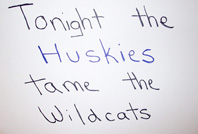 Tonight the
Huskies
tame the
Wildcats